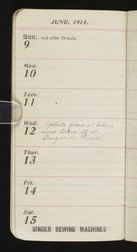 JUNE, 1918.
Sun. 2nd after Trinity.
9
Mon.
10
Tues.
11
Wed.
12
were taken off at
Thur.
13
Fri.
14
Sat.
15
SINGER SEWING MACHINES